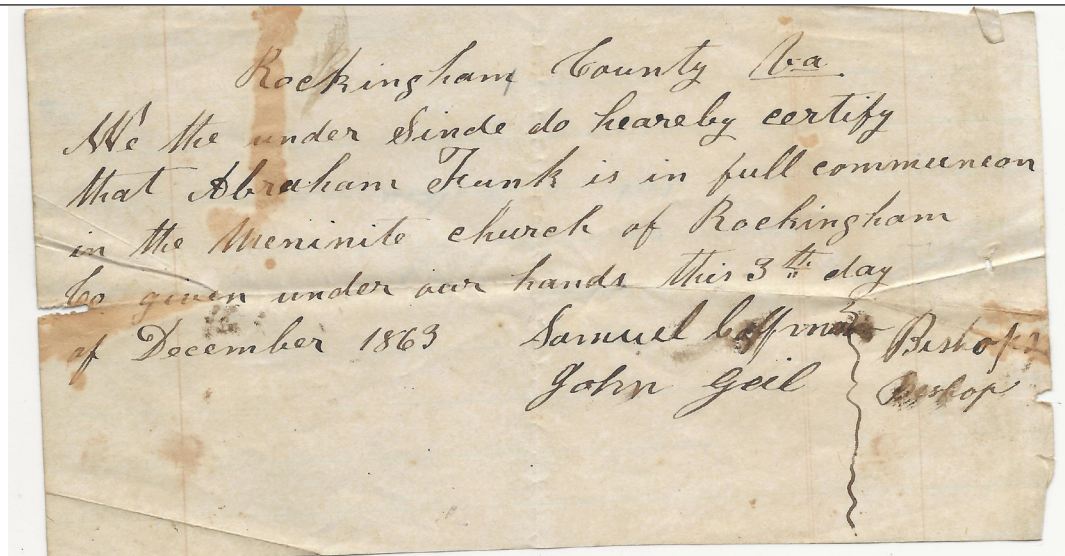 Rockingham County Va.
We the under Sinde do heareby certify
that Abraham Funk is in full communeon
in the Meninite church of Rockingham
Co given under our hands this 3th day
of December 1863 Samuel Coffman Bishop
John Geil Bishop